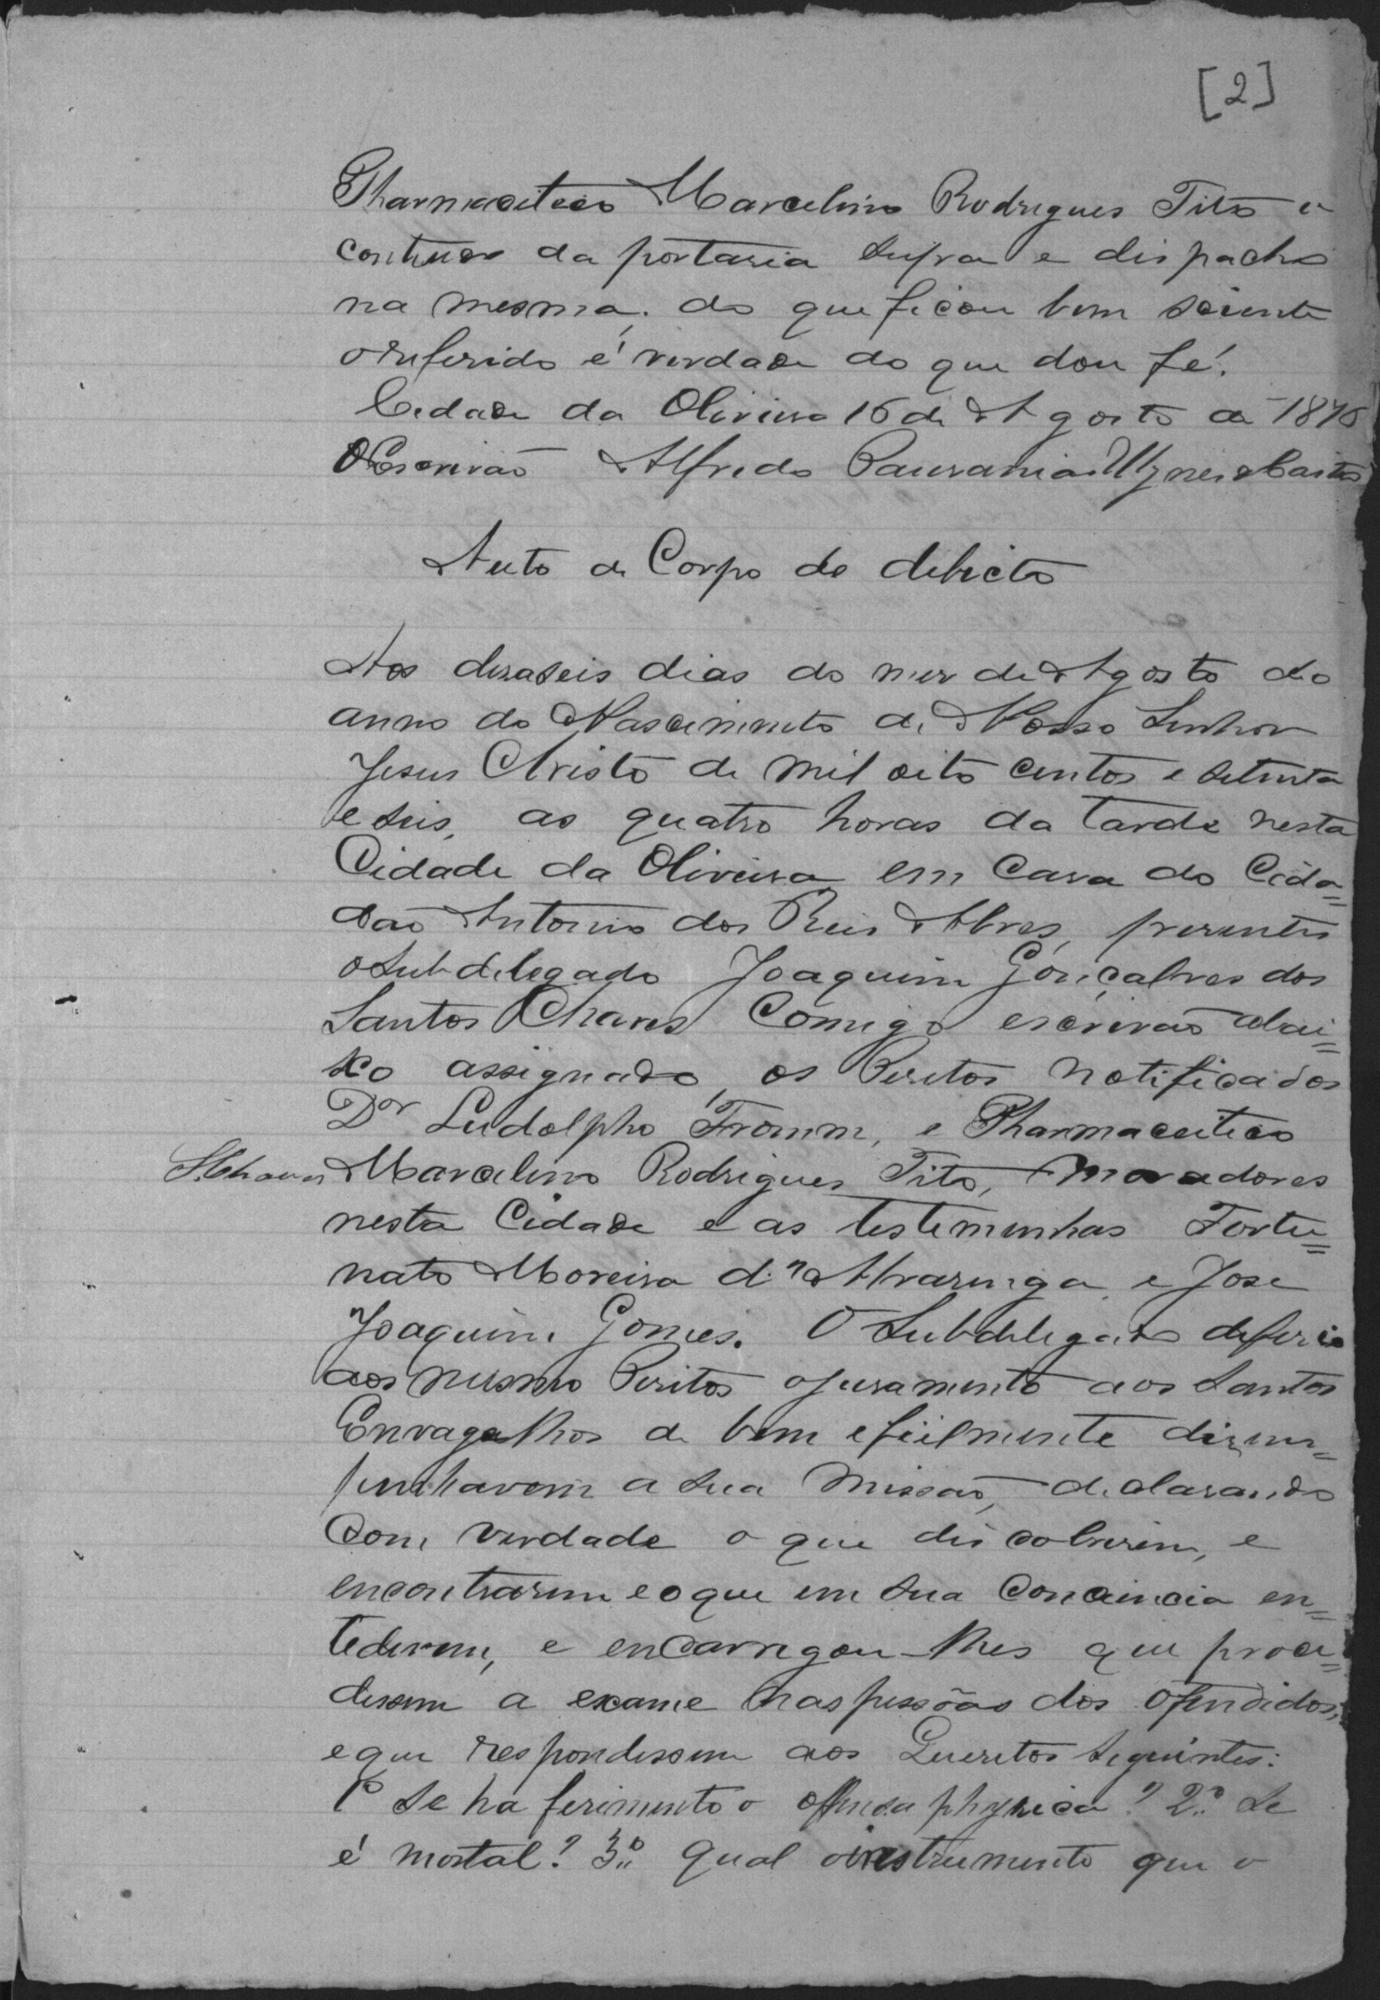 [2]
Pharmaceiteco Marcelino Rodrigues Tito o
contheor da portaria supra e dispacho
na mesma, do que ficou bem sciente
o referido é verdade do que dou fé.
Cidade da Oliveira 16 de Agosto de 1876
O Escrivão Alfredo Pausanias
Auto de Corpo de delicto
Aos desaseis dias do mez de Agosto do
anno do Nascimento de Nosso Senhor
Jesus Christo de mil oito centos e setenta
e seis, as quatro horas da tarde nesta
Cidade da Oliveira em Casa do Cida=
dão Antonio dos Reis Alves, presentes
o Subdelegado Joaquim Gonçalves dos
Santos Chaves Comigo escrivão abai=
xo assignado, os Peritos notificados
Dor Ludolpho Fromm, e Pharmaceiteco
S. Chaves Marcelino Rodrigues Tito, moradores
nesta Cidade e as testemunhas Fortu=
nato Moreira d. Alvarenga, e Jose
Joaquim Gomes. O Subdelegado deferio
aos mesmo Peritos o juramento aos Santos
Envagelhos de bem e fielmente dizem=
penharem a sua missão, declarando
com verdade o que discobrirem, e
encontrarem e o que em sua conciencia en=
tederem, e encarregou-lhes que proce=
dessem a exame nas pessôas dos Ofendidos,
e que respondessem aos Queretos seguintes:
1º Se ha ferimento o offensa physica? 2º Se
é mortal? 3º Qual o instrumento que o